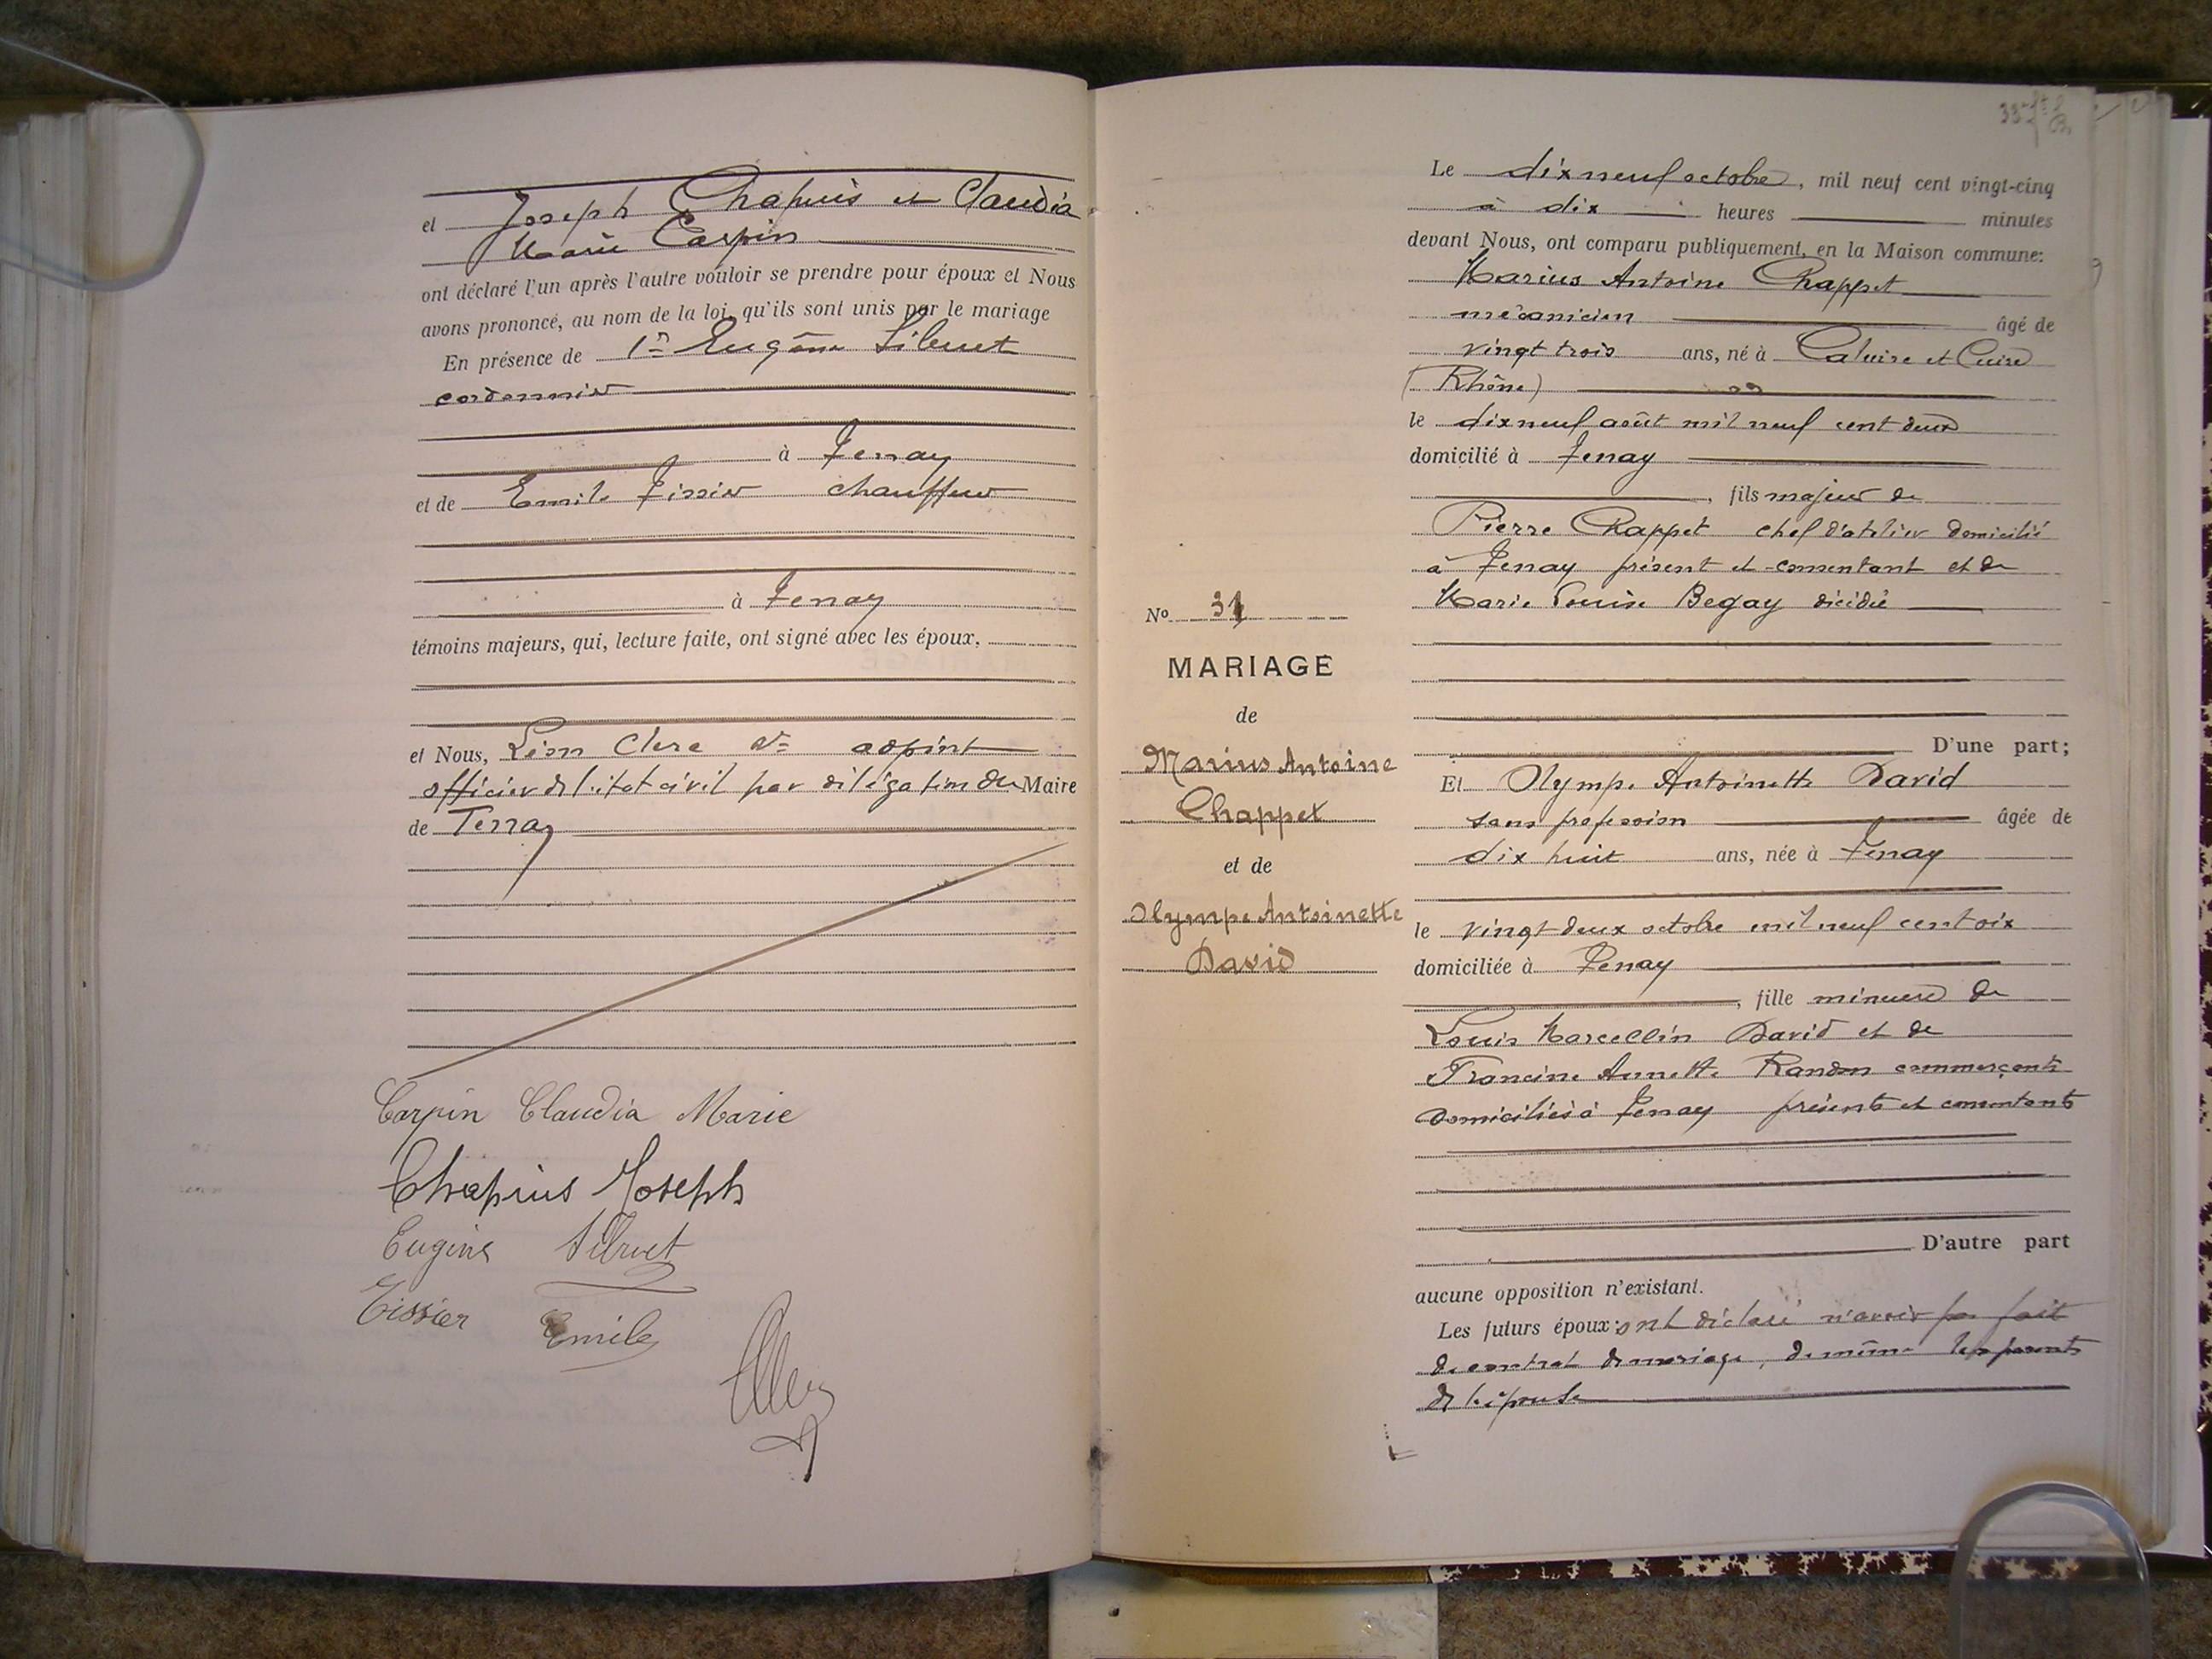 et Joseph Chapuis et Claudia
Marie Carpin
ont déclaré l'un après l'autre vouloir se prendre pour époux et Nous
avons prononcé, au nom de la loi, qu'ils sont unis par le mariage
En présence de 1° Eugène Silvuet
cordonnier
à Tenay
et de Emile Tissier chauffeur
à Tenay
témoins majeurs, qui, lecture faite, ont signé avec les époux.
et Nous, Léon Clerc adjoint
officier de l'état civil par délégation du Maire
de Tenay
Carpin Claudia Marie
Chapuis Joseph
Eugène
Tissier Emile
Le dix neuf octobre, mil neuf cent vingt-cinq
à dix heures minutes
devant Nous, ont comparu publiquement, en la Maison commune:
Marius Antoine Chappet
mécanicien âgé de
vingt trois ans, né à Caluire et Cuire
(Rhône)
le dix neuf août mil neuf cent deux
domicilié à Tenay
, fils majeur de
Pierre Chappet chef d'atelier domicilié
à Tenay présent et consentant et de
Marie Louise Begay décédée
D'une part;
Et Olympe Antoinette David
sans profession âgée de
dix huit ans, née à Tenay
le vingt deux octobre mil neuf cent six
domiciliée à Tenay
, fille mineure de
Louis Marcellin David et de
Francine Annette Randon commerçants
domiciliés à Tenay présents et consentants
D'autre part
aucune opposition n'existant.
Les futurs époux ont déclaré n'avoir pas fait
de contrat de mariage, de même les parents
de l'épouse
No 31
MARIAGE
de
Marius Antoine
Chappet
et de
Olympe Antoinette
David